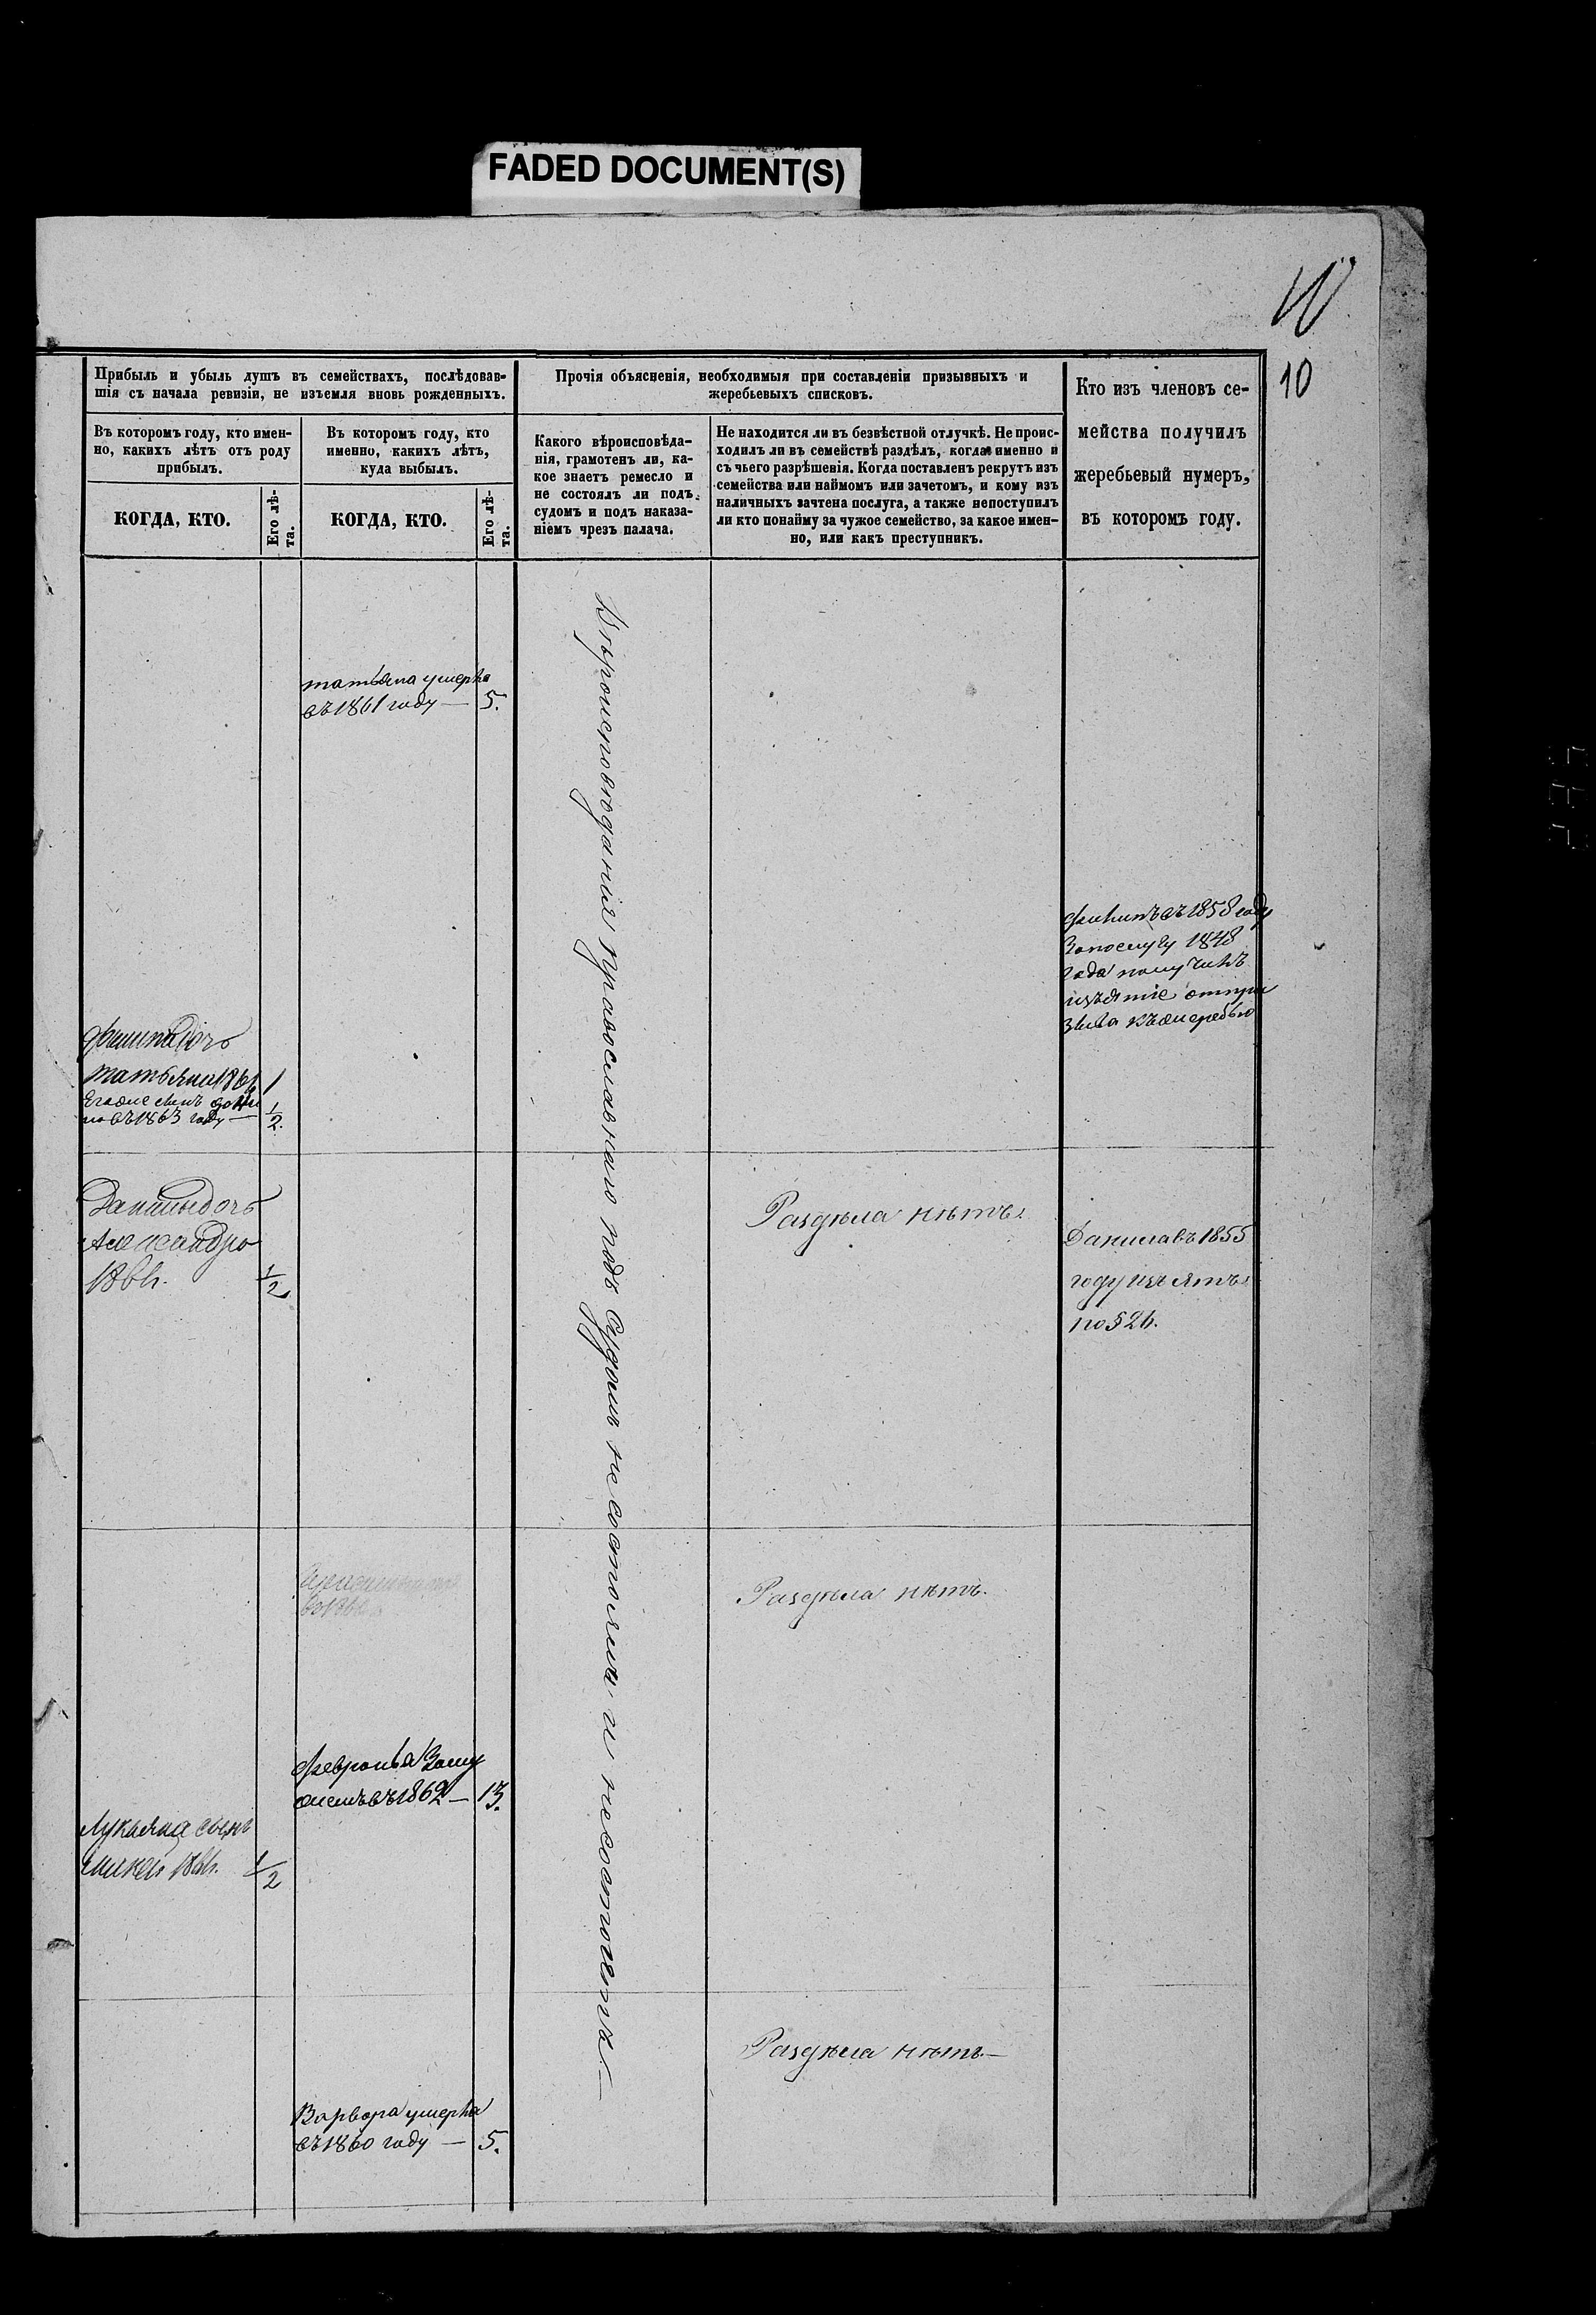 FADED DOCUMENT(S)
10
Прибыль и убыль душъ въ семействахъ, послѣдовав-
шія съ начала ревизіи, не изъемля вновь рожденныхъ.
Прочія объясненія, необходимыя при составленіи призывныхъ и
жеребьевыхъ списковъ.
Кто изъ членовъ се-
мейства получилъ
жеребьевый нумеръ,
въ которомъ году.
Въ которомъ году, кто имен-
но, какихъ лѣтъ отъ роду
прибылъ.
Въ которомъ году, кто
именно, какихъ лѣтъ,
куда выбылъ.
Какого вѣроисповѣда-
нія, грамотенъ ли, ка-
кое знаетъ ремесло и
не состоялъ ли подъ
судомъ и подъ наказа-
ніемъ чрезъ палача.
Не находится ли въ безвѣстной отлучкѣ. Не проис-
ходилъ ли въ семействѣ раздѣлъ, когда именно и
съ чьего разрѣшенія. Когда поставленъ рекрутъ изъ
семейства или наймомъ или зачетомъ, и кому изъ
наличныхъ зачтена послуга, а также непоступилъ
ли кто понайму за чужое семейство, за какое имен-
но, или какъ преступникъ.
КОГДА, КТО.
Его лѣ-
та.
КОГДА, КТО.
Его лѣ-
та.
татьяна умерла
въ 1861 году — 5.
Вѣроисповѣданія православнаго подъ судомъ несостояли и несостоятъ
Филипъ въ 1858 году
Запослугу 1848
года получилъ
изъятіе отпри
зыва къжеребью
дочь
татьяна 1861 1
но въ 1863 году — 1/2.
Данилы дочь
Александра
1/2
Раздѣла нѣтъ.
Данила въ 1855
году изъятъ
по § 26.
Раздѣла нѣтъ.
Февронья Заму
жемъ въ 1862 — 13.
Лукьяна сынъ
1/2
Раздѣла нѣтъ —
Варвара умерла
въ 1860 году — 5.